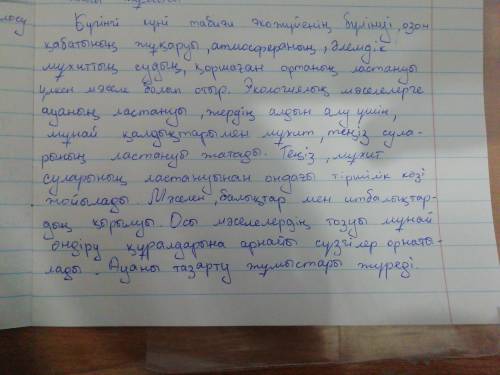 Бүгінгі күні табиғи экожүйенің бүлінуі, озон
қабатының жұқаруы, атмосфераның, әлемдік
мұхиттың судың, қоршаған ортаның ластануы
үлкен мәселе болып отыр. Экологиялық мәселелерге
ауаның ластануы, жердің алдын алу үшін,
мұнай қалдықтарымен мұхит, теңіз сула-
рының ластануы жатады. Теңіз, мұхит
суларының ластануынан ондағы тіршілік көзі
жойылады. Мәселен, балықтар мен итбалықтар-
дың қырылуы. Осы мәселелердің тозуы мұнай
өндіру құралдарына арнайы сүзгілер орнаты-
лады. Ауаны тазарту жұмыстары жүреді.